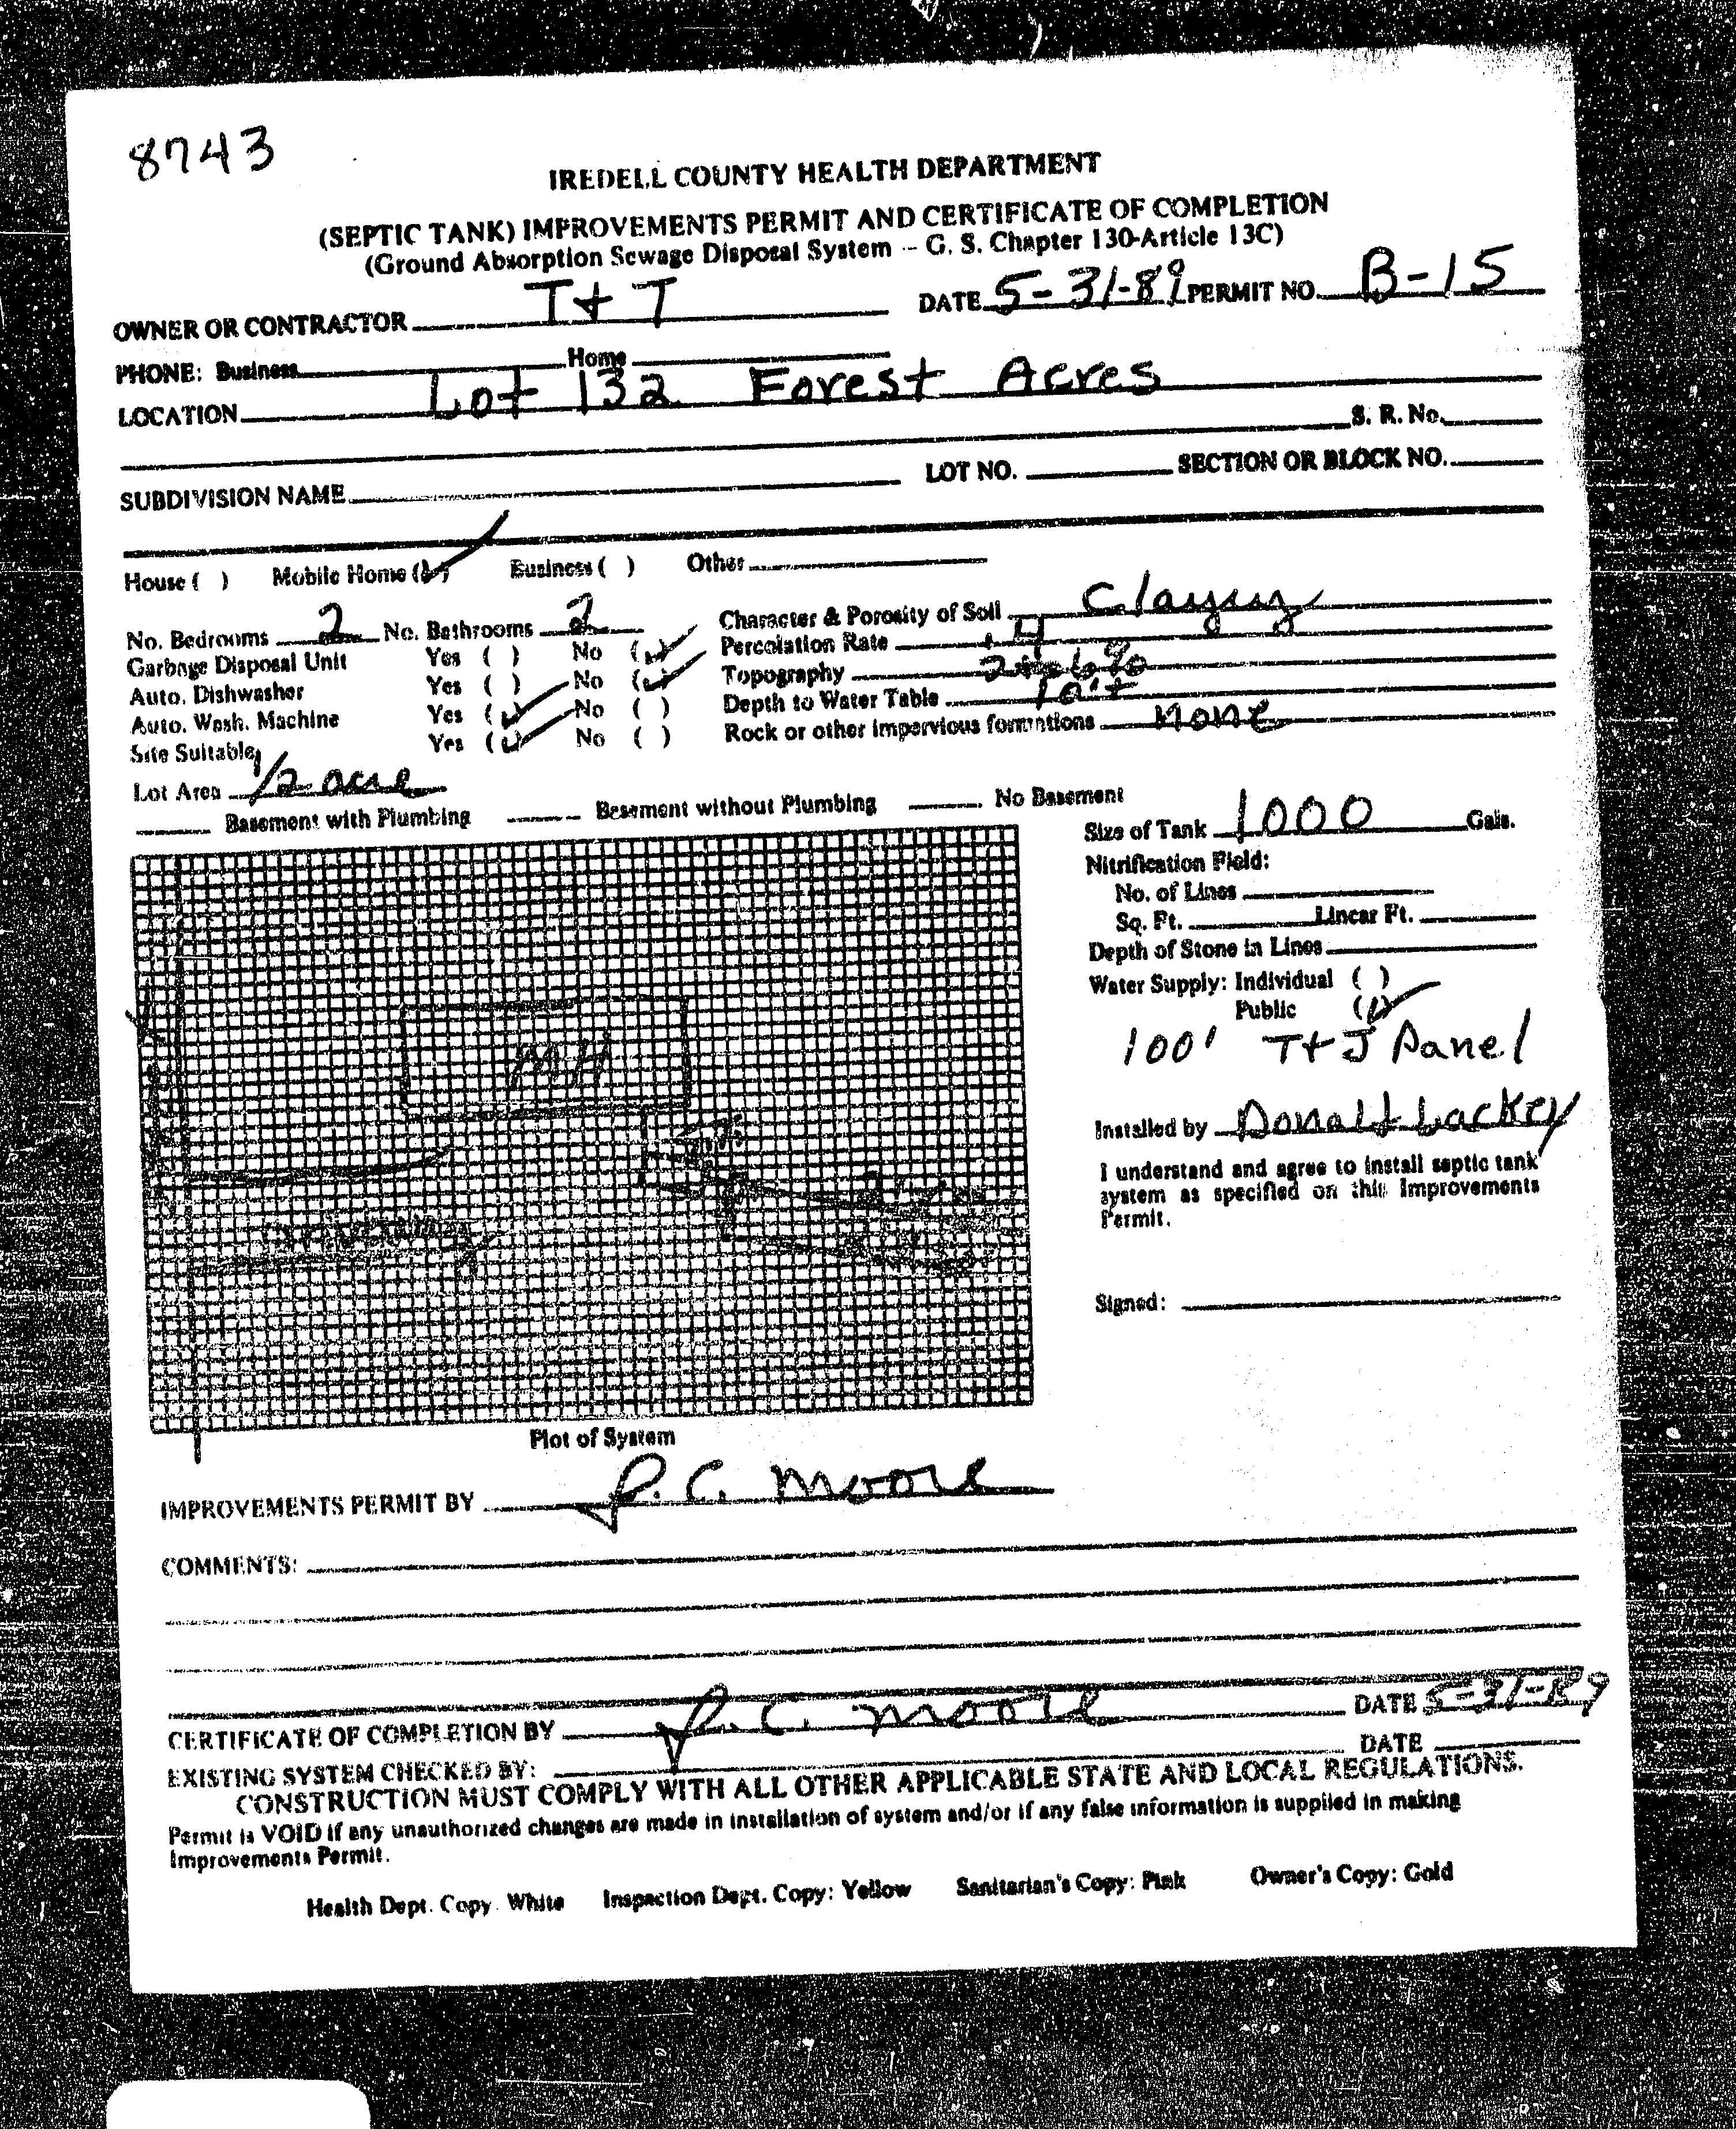 8743
IREDELL COUNTY HEALTH DEPARTMENT
(SEPTIC TANK) IMPROVEMENTS PERMIT AND CERTIFICATE OF COMPLETION
(Ground Absorption Sewage Disposal System -- G. S. Chapter 130-Article 13C)
OWNER OR CONTRACTOR T + T DATE 5-31-89 PERMIT NO. B-15
PHONE: Business Home
LOCATION Lot 132 Forest Acres
S. R. No.
SUBDIVISION NAME LOT NO. SECTION OR BLOCK NO.
House ( ) Mobile Home (✓) Business ( ) Other
No. Bedrooms 2 No. Bathrooms 2 Character & Porosity of Soil Clayey
Garbage Disposal Unit Yes ( ) No (✓) Percolation Rate
Auto. Dishwasher Yes ( ) No (✓) Topography 2 to 6%
Auto. Wash. Machine Yes (✓) No ( ) Depth to Water Table 10'+
Site Suitable Yes (✓) No ( ) Rock or other impervious formations none
Lot Area 1/2 acre
Basement with Plumbing Basement without Plumbing No Basement
Size of Tank 1000 Gals.
Nitrification Field:
No. of Lines
Sq. Ft. Linear Ft.
Depth of Stone in Lines
Water Supply: Individual ( )
Public (✓)
100' T+J Panel
MH
Installed by Donald Lackey
I understand and agree to install septic tank
system as specified on this Improvements
Permit.
Signed:
Plot of System
IMPROVEMENTS PERMIT BY J. C. Moore
COMMENTS:
CERTIFICATE OF COMPLETION BY J. C. Moore DATE 5-31-89
EXISTING SYSTEM CHECKED BY: DATE
CONSTRUCTION MUST COMPLY WITH ALL OTHER APPLICABLE STATE AND LOCAL REGULATIONS.
Permit is VOID if any unauthorized changes are made in installation of system and/or if any false information is supplied in making
Improvements Permit.
Health Dept. Copy. White Inspection Dept. Copy: Yellow Sanitarian's Copy: Pink Owner's Copy: Gold